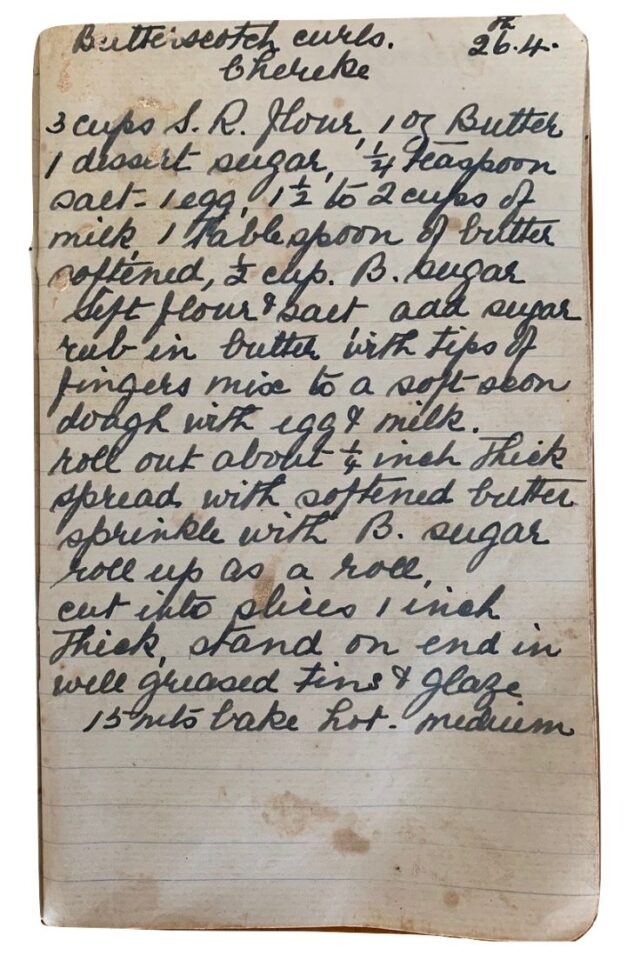 Butterscotch curls. 26.4.
Chereke
3 cups S. R. flour, 1 oz Butter
1 dissert sugar, 1/4 teaspoon
salt - 1 egg, 1 1/2 to 2 cups of
milk, 1 tablespoon of butter
softened, 1/2 cup. B. sugar
Sift flour & salt add sugar
rub in butter with tips of
fingers mix to a soft scon
dough with egg & milk.
roll out about 1/4 inch thick
spread with softened butter
sprinkle with B. sugar
roll up as a roll,
cut into slices 1 inch
thick, stand on end in
well greased tins & glaze
15 mts bake hot - medium